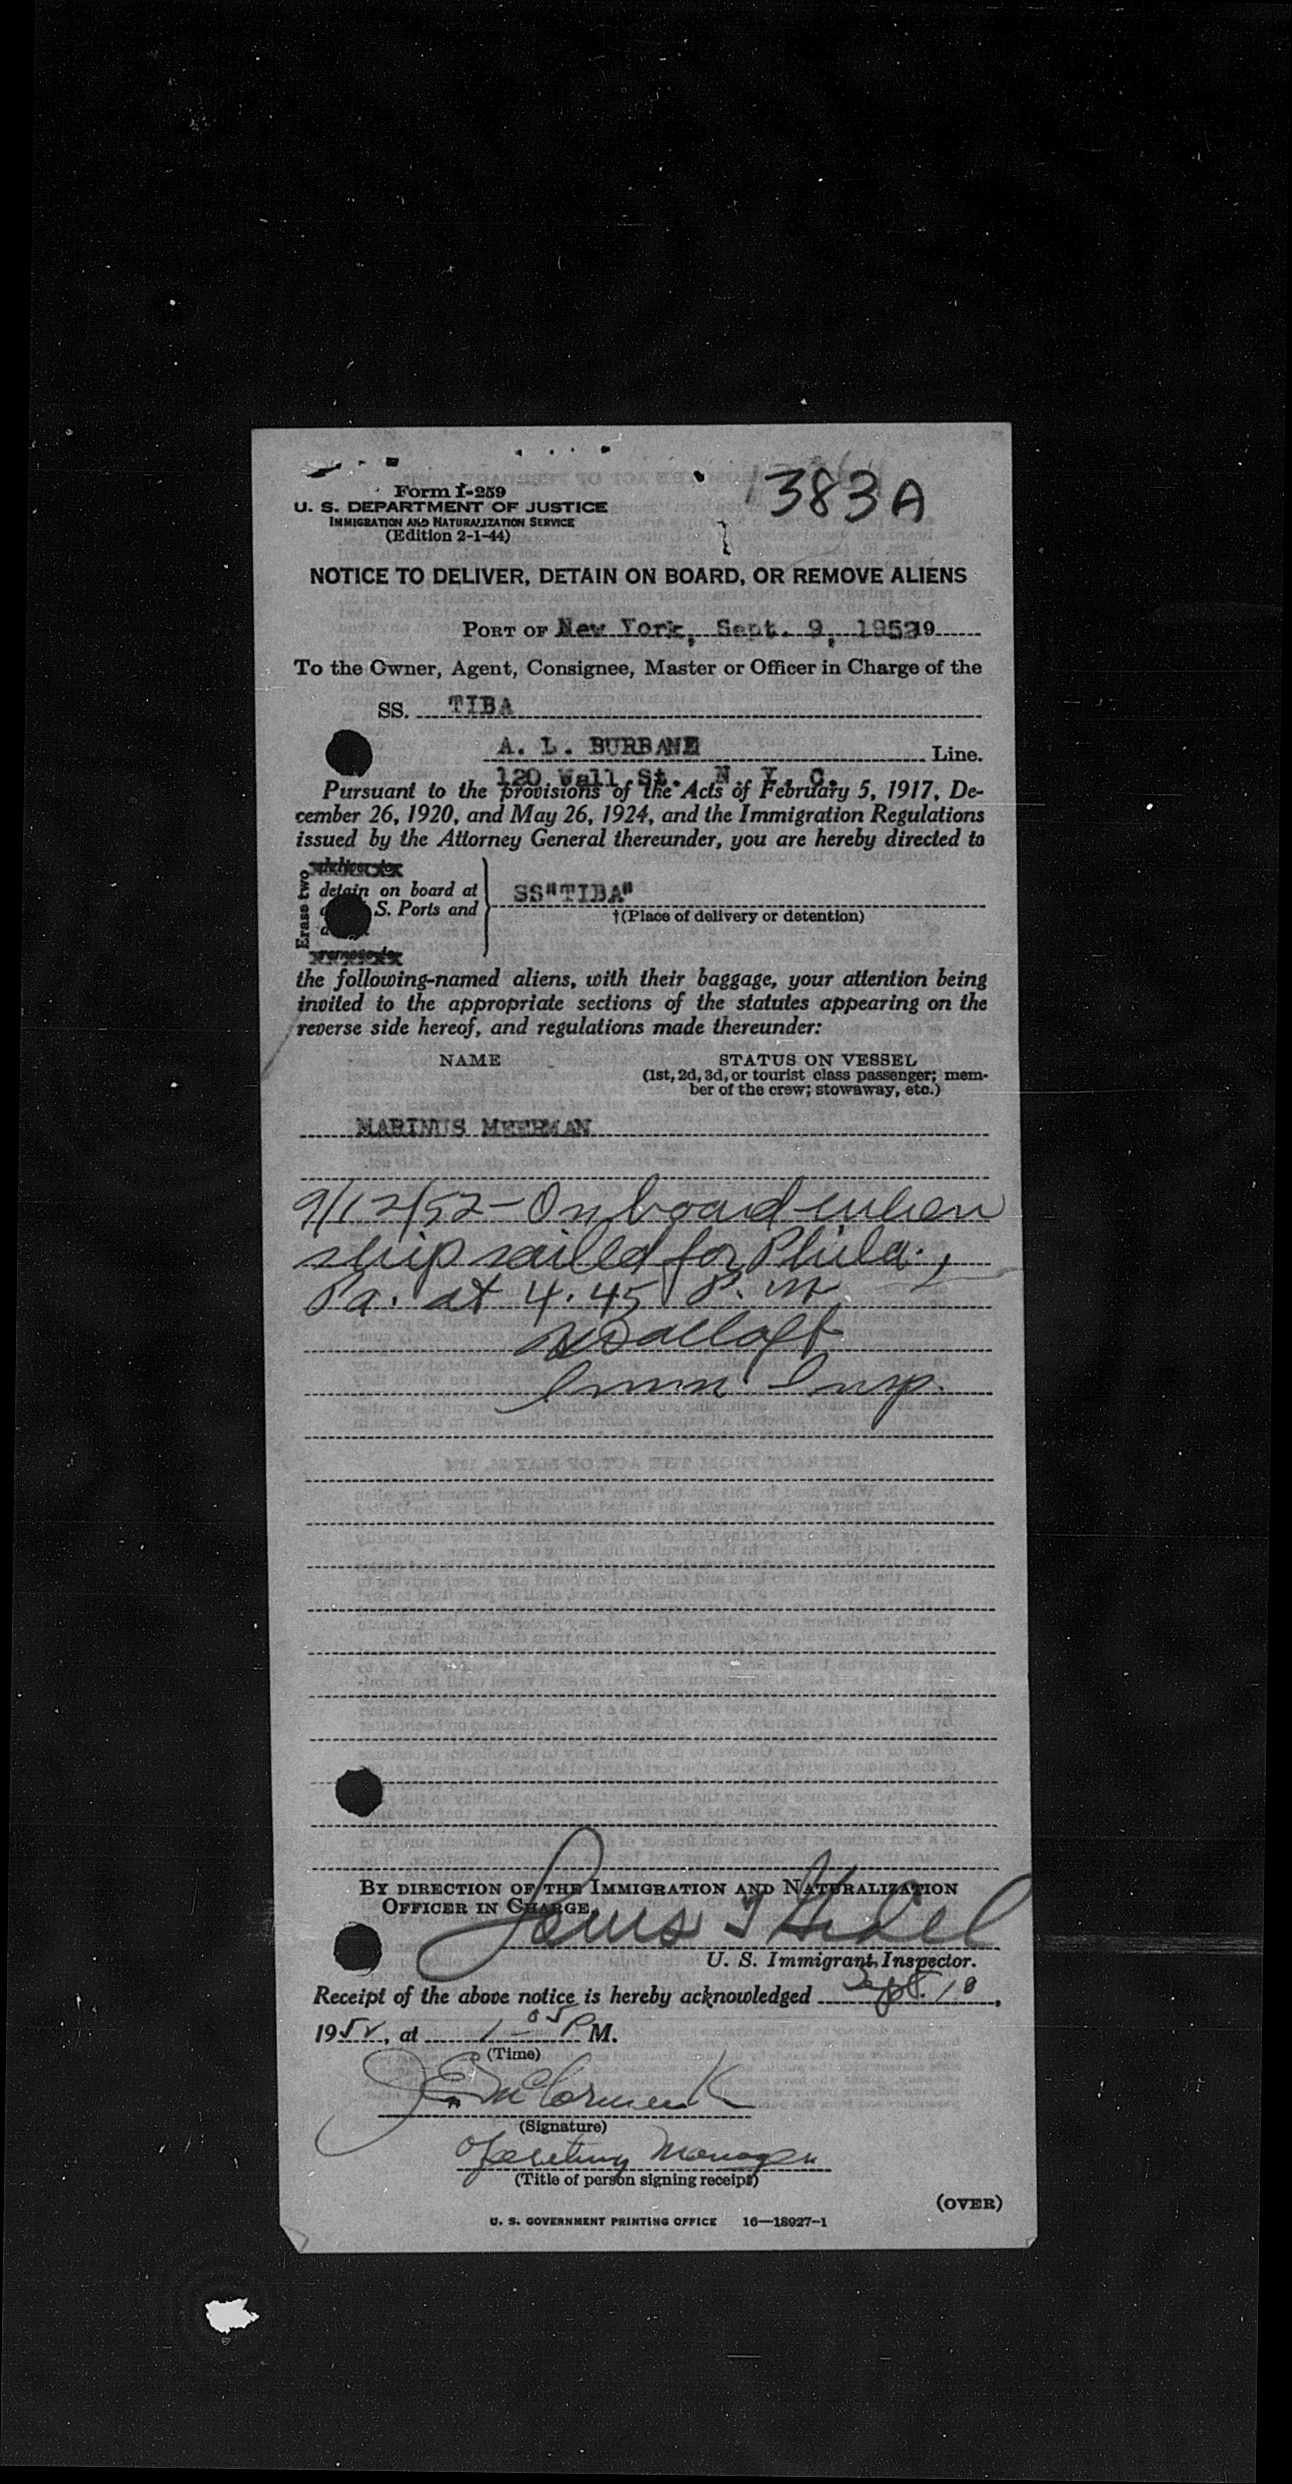 383A
Form I-259
U. S. DEPARTMENT OF JUSTICE
IMMIGRATION AND NATURALIZATION SERVICE
(Edition 2-1-44)
NOTICE TO DELIVER, DETAIN ON BOARD, OR REMOVE ALIENS
PORT OF New York, Sept. 9, 1952 19
To the Owner, Agent, Consignee, Master or Officer in Charge of the
SS. TIBA
A. L. BURBANK Line.
120 Wall St. N. Y. C.
Pursuant to the provisions of the Acts of February 5, 1917, De-
cember 26, 1920, and May 26, 1924, and the Immigration Regulations
issued by the Attorney General thereunder, you are hereby directed to
Erase two
detain on board at
S. Ports and
SS"TIBA"
†(Place of delivery or detention)
the following-named aliens, with their baggage, your attention being
invited to the appropriate sections of the statutes appearing on the
reverse side hereof, and regulations made thereunder:
NAME STATUS ON VESSEL
(1st, 2d, 3d, or tourist class passenger; mem-
ber of the crew; stowaway, etc.)
MARINUS MEERMAN
9/12/52 - On board when
ship sailed for Phila.,
Pa. at 4.45 P.M
Imm. Insp.
BY DIRECTION OF THE IMMIGRATION AND NATURALIZATION
OFFICER IN CHARGE.
U. S. Immigrant Inspector.
Receipt of the above notice is hereby acknowledged Sept. 10,
1952, at 1-05 P M.
(Time)
J. E. McCormack
(Signature)
Operating Manager
(Title of person signing receipt)
(OVER)
U. S. GOVERNMENT PRINTING OFFICE 16—18927-1